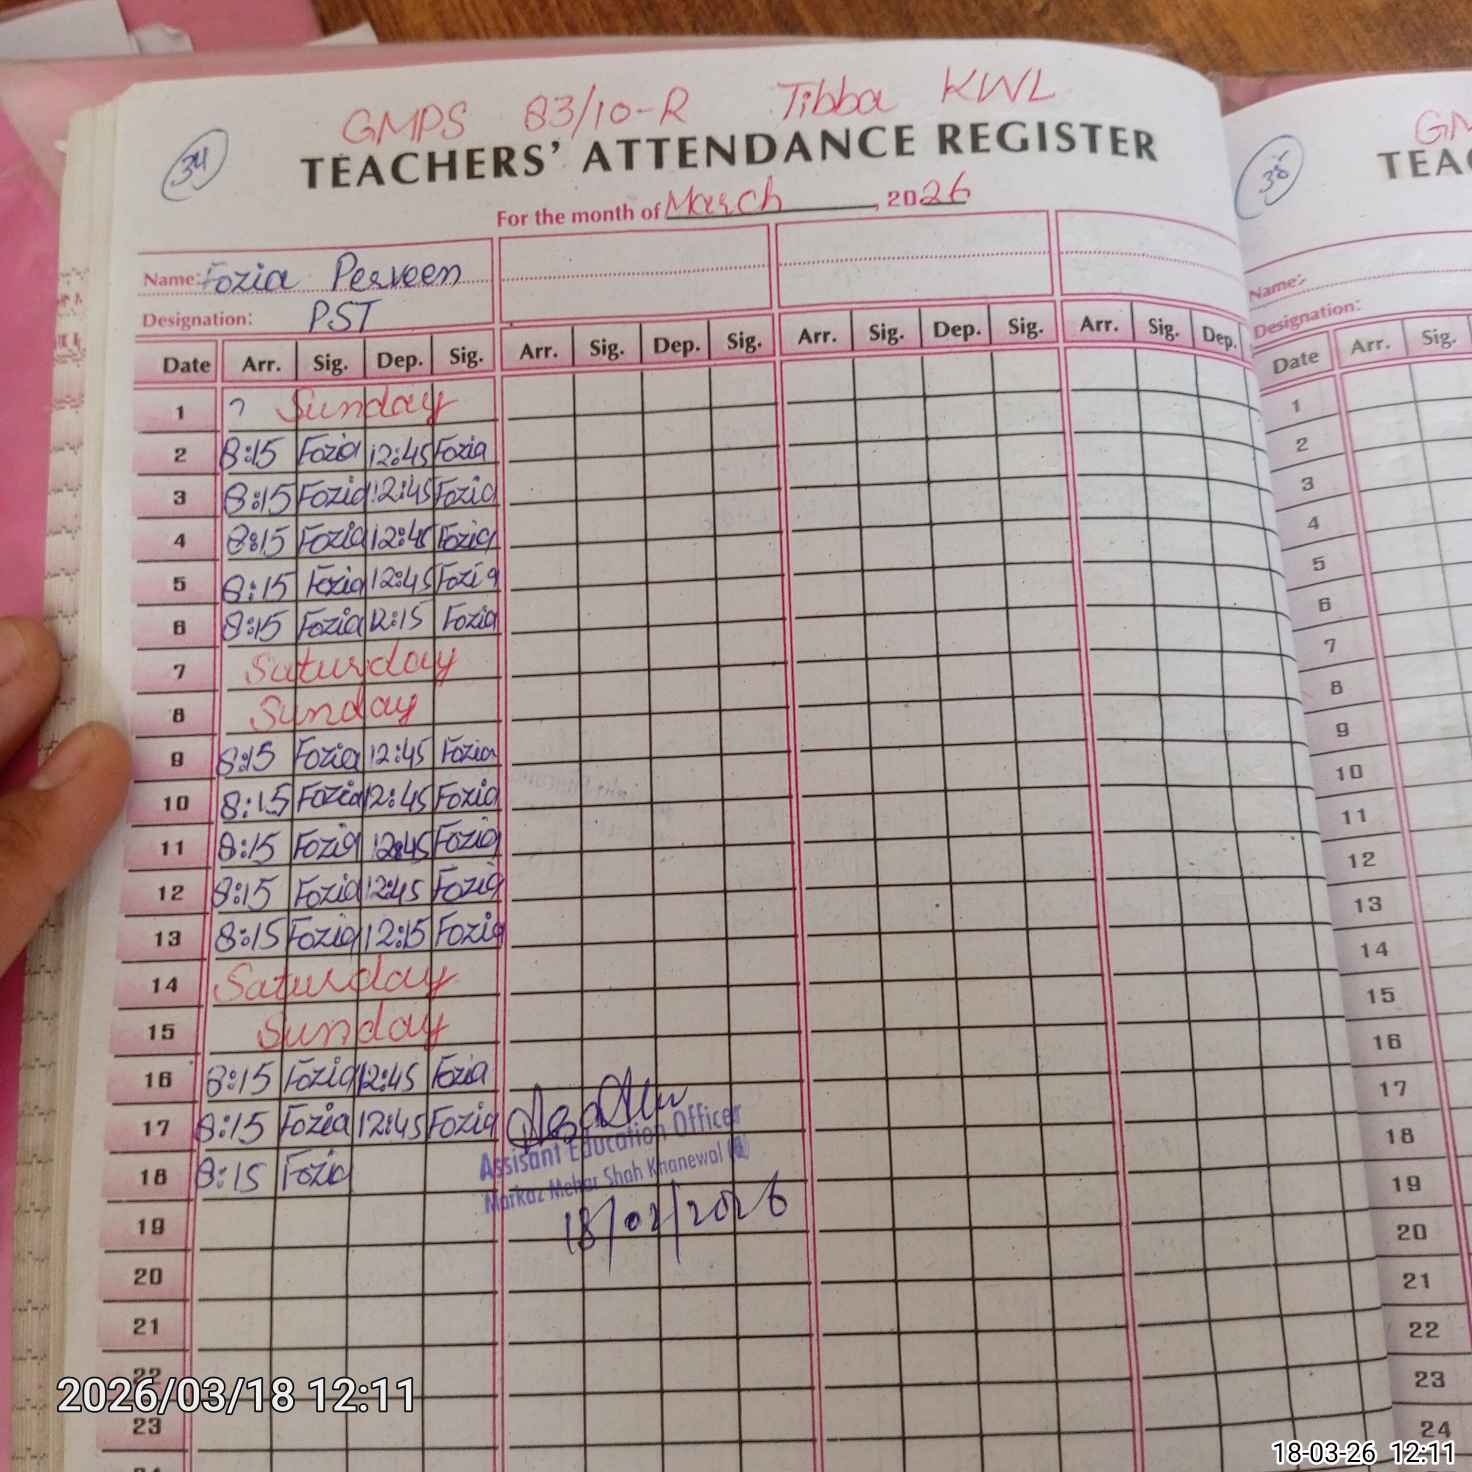 GMPS 83/10-R Tibba KWL
34
TEACHERS' ATTENDANCE REGISTER
For the month of March, 2026
Name: Fozia Perveen
Designation: PST
Date Arr. Sig. Dep. Sig. Arr. Sig. Dep. Sig. Arr. Sig. Dep. Sig. Arr. Sig. Dep.
1 Sunday
2 8:15 Fozia 12:45 Fozia
3 8:15 Fozia 12:45 Fozia
4 8:15 Fozia 12:45 Fozia
5 8:15 Fozia 12:45 Fozia
6 8:15 Fozia 12:15 Fozia
7 Saturday
8 Sunday
9 8:15 Fozia 12:45 Fozia
10 8:15 Fozia 12:45 Fozia
11 8:15 Fozia 12:45 Fozia
12 8:15 Fozia 12:45 Fozia
13 8:15 Fozia 12:15 Fozia
14 Saturday
15 Sunday
16 8:15 Fozia 12:45 Fozia
17 8:15 Fozia 12:45 Fozia
18 8:15 Fozia
Assisant Education Officer
Markaz Mehar Shah Khanewal
18/02/2026
19
20
21
22
23
GM
TEAC
Name:
Designation:
Date Arr. Sig.
1
2
3
4
5
6
7
8
9
10
11
12
13
14
15
16
17
18
19
20
21
22
23
24
2026/03/18 12:11
18-03-26 12:11